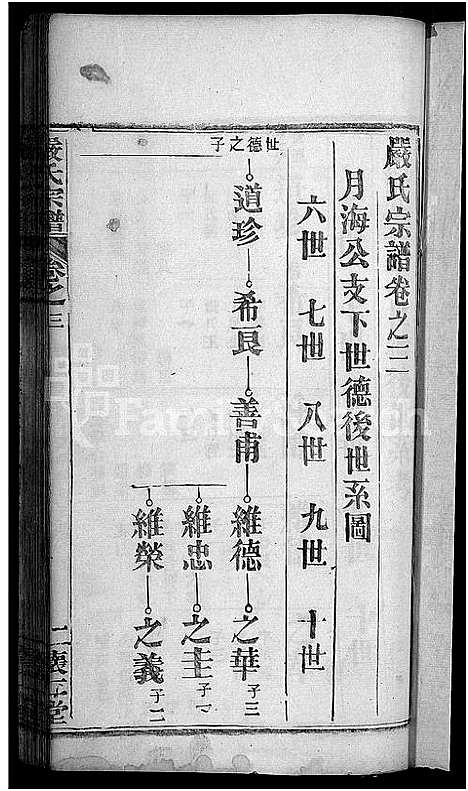 嚴氏宗譜卷之三
月海公支下世德後世系圖
六世 七世 八世 九世 十世
世德之子
道珍 希良 善甫 維德 之華 子三
維忠 之主 子一
維榮 之義 子二
嚴氏宗譜 卷之三 一